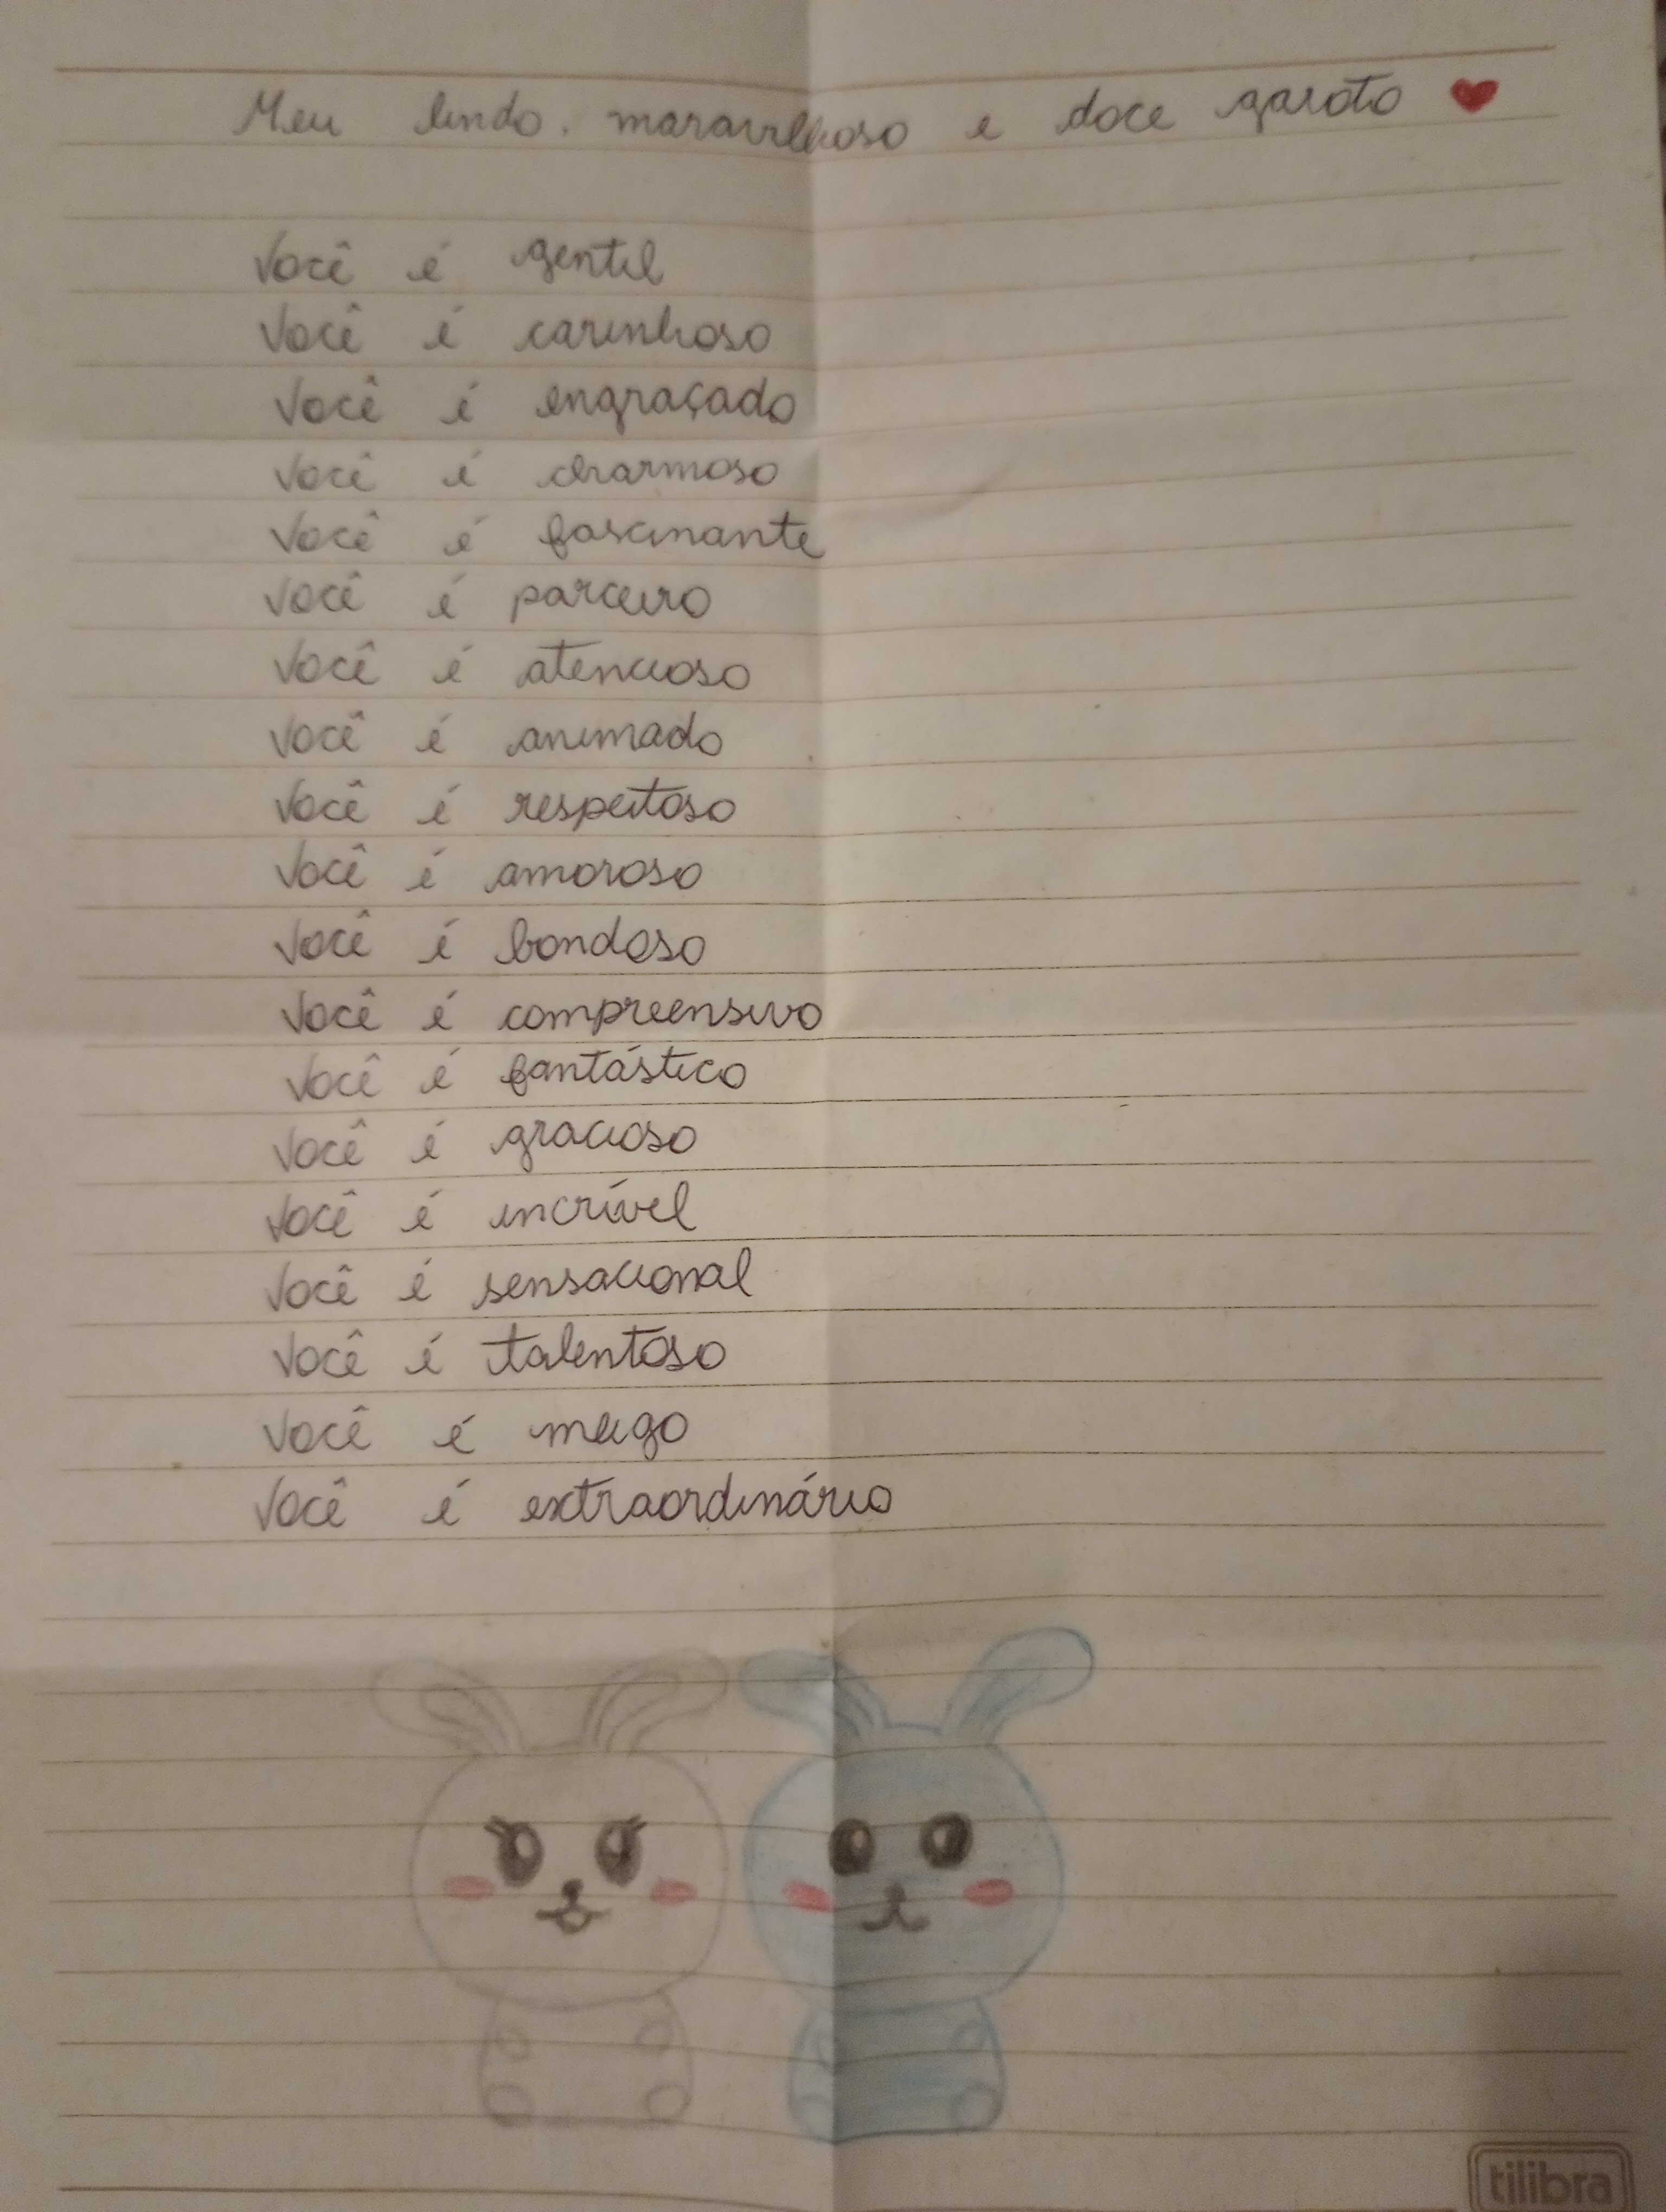 Meu lindo, maravilhoso e doce garoto ❤
Você é gentil
Você é carinhoso
Você é engraçado
Você é charmoso
Você é fascinante
Você é parceiro
Você é atencioso
Você é animado
Você é respeitoso
Você é amoroso
Você é bondoso
Você é compreensivo
Você é fantástico
Você é gracioso
Você é incrível
Você é sensacional
Você é talentoso
Você é meigo
Você é extraordinário
tilibra